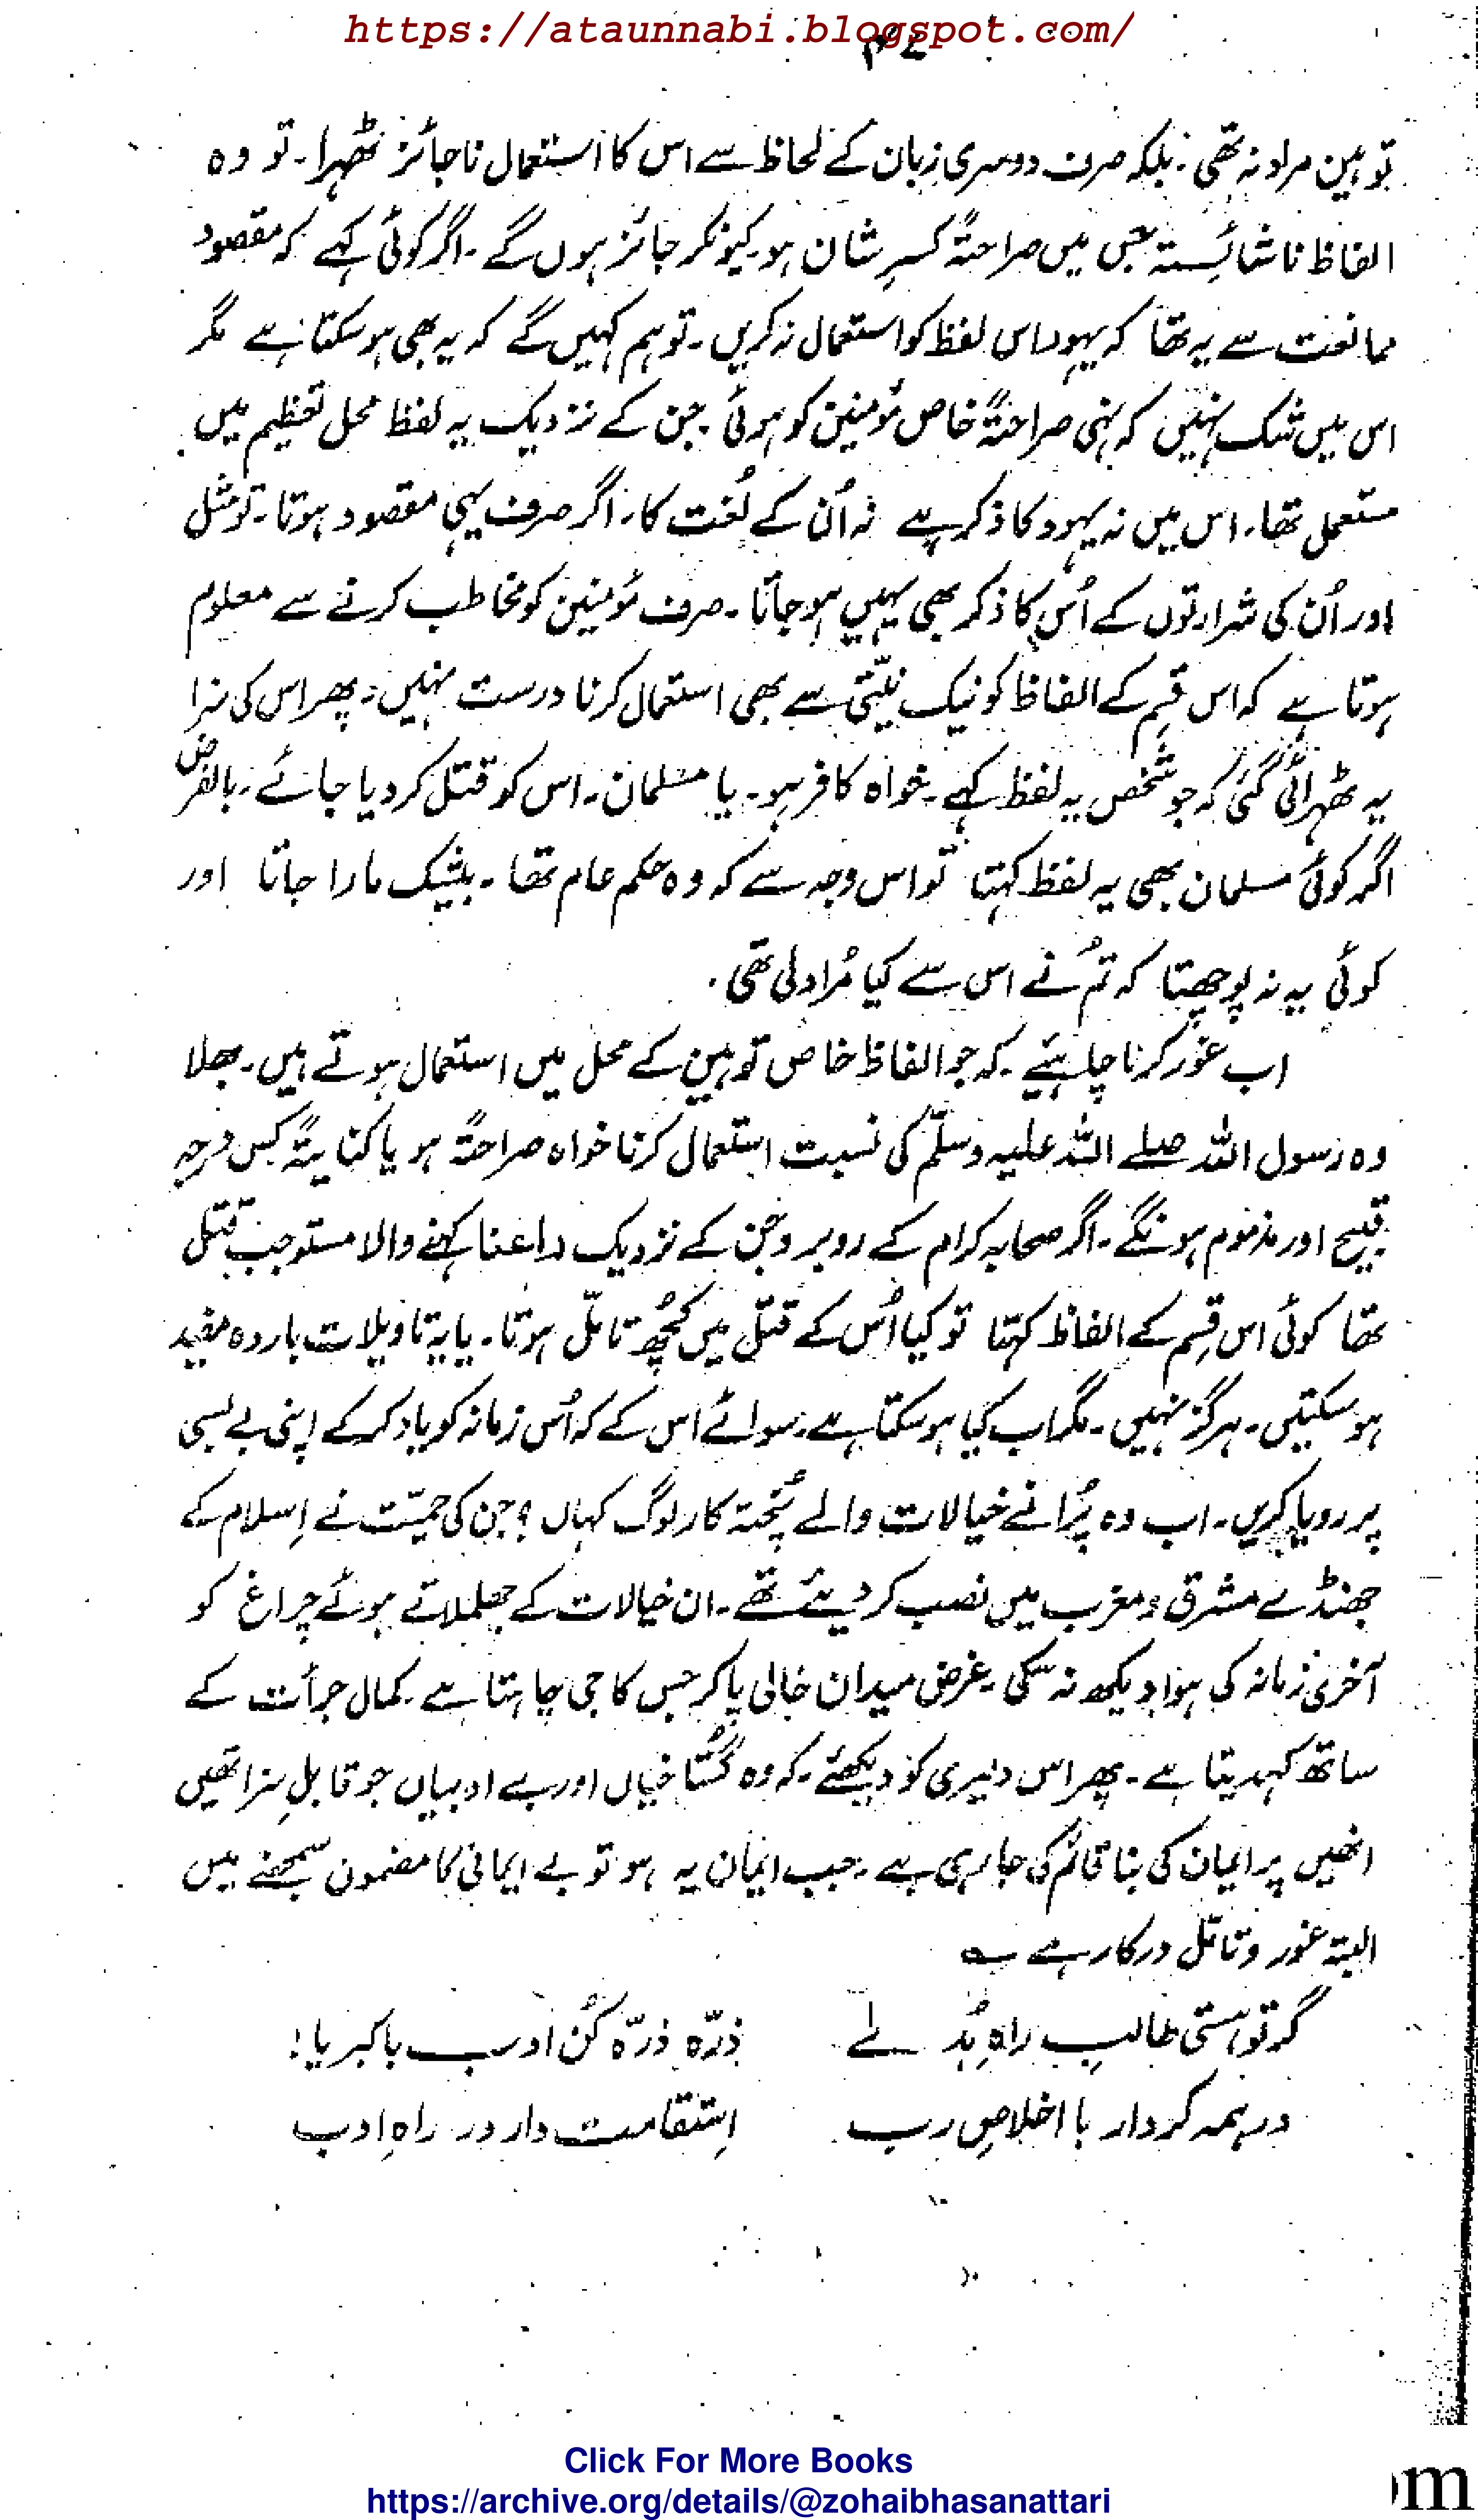 https://ataunnabi.blogspot.com/
۴۷
توہین مراد نہ تھی۔ بلکہ صرف دوسری زبان کے لحاظ سے اس کا استعمال ناجائز ٹھہرا۔ تو وہ
الفاظ ناشائستہ جس میں صراحتہً کسرِ شان ہو۔ کیونکر جائز ہوں گے۔ اگر کوئی کہے کہ مقصود
ممانعت سے یہ تھا کہ یہود اس لفظ کو استعمال نہ کریں۔ تو ہم کہیں گے کہ یہ بھی ہو سکتا ہے مگر
اس میں شک نہیں کہ نہی صراحتہً خاص مؤمنین کو ہوئی جن کے نزدیک یہ لفظ محل تعظیم میں
مستعمل تھا۔ اس میں نہ یہود کا ذکر ہے نہ اُن کے لُغت کا۔ اگر صرف یہی مقصود ہوتا۔ تو مثل
اور اُن کی شرارتوں کے اُس کا ذکر بھی یہیں ہو جاتا۔ صرف مؤمنین کو مخاطب کرنے سے معلوم
ہوتا ہے کہ اس قِسم کے الفاظ کو نیک نیّتی سے بھی استعمال کرنا درست نہیں۔ پھر اس کی سزا
یہ ٹھہرائی گئی کہ جو شخص یہ لفظ کہے۔ خواہ کافر ہو۔ یا مسلمان۔ اس کو قتل کر دیا جائے۔ بالفرض
اگر کوئی مسلمان بھی یہ لفظ کہتا تو اس وجہ سے کہ وہ حکم عام تھا۔ بیشک مارا جاتا اور
کوئی یہ نہ پوچھتا کہ تُم نے اس سے کیا مُراد لی تھی۔
اب غور کرنا چاہئیے۔ کہ جو الفاظ خاص توہین کے محل میں استعمال ہوتے ہیں۔ بھلا
وہ رسول اللہ صلے اللہ علیہ وسلّم کی نسبت استعمال کرنا خواہ صراحتہً ہو یا کنایتہً کس درجہ
قبیح اور مذموم ہونگے۔ اگر صحابہ کرام کے روبرو جن کے نزدیک راعنا کہنے والا مستوجب قتل
تھا کوئی اس قِسم کے الفاظ کہتا تو کیا اُس کے قتل میں کچُھ تامّل ہوتا۔ یا یہ تاویلات باردہ مفید
ہو سکتیں۔ ہرگز نہیں۔ مگر اب کیا ہو سکتا ہے۔ سوائے اس کے کہ اُس زمانہ کو یاد کر کے اپنی بے بسی
پر رویا کریں۔ اب وہ پُرانے خیالات والے پُختہ کار لوگ کہاں ؟ جن کی حمیّت نے اِسلام کے
جھنڈے مشرق و مغرب میں نصب کر دیئے تھے۔ ان خیالات کے جھلملاتے ہوئے چراغ کو
آخری زمانہ کی ہوا دیکھ نہ سکی۔ غرض میدان خالی پا کر جس کا جی چاہتا ہے۔ کمال جرأت کے
ساتھ کہہ دیتا ہے۔ پھر اس دلیری کو دیکھئے۔ کہ وہ گُستاخیاں اور بے ادبیاں جو قابلِ سزا تھیں
انھیں پر ایمان کی بنا قائم کی جا رہی ہے۔ جب ایمان یہ ہو تو بے ایمانی کا مضمون سمجھنے میں
البتہ غور و تامّل درکار ہے ؎
گر تو ہستی طالبِ راہِ ہُدٰے
ذرّہ ذرّہ کُن ادب با کبریا!
در ہمہ کردار با اخلاصِ رب
اِستقامت دار در راہِ ادب
Click For More Books
https://archive.org/details/@zohaibhasanattari